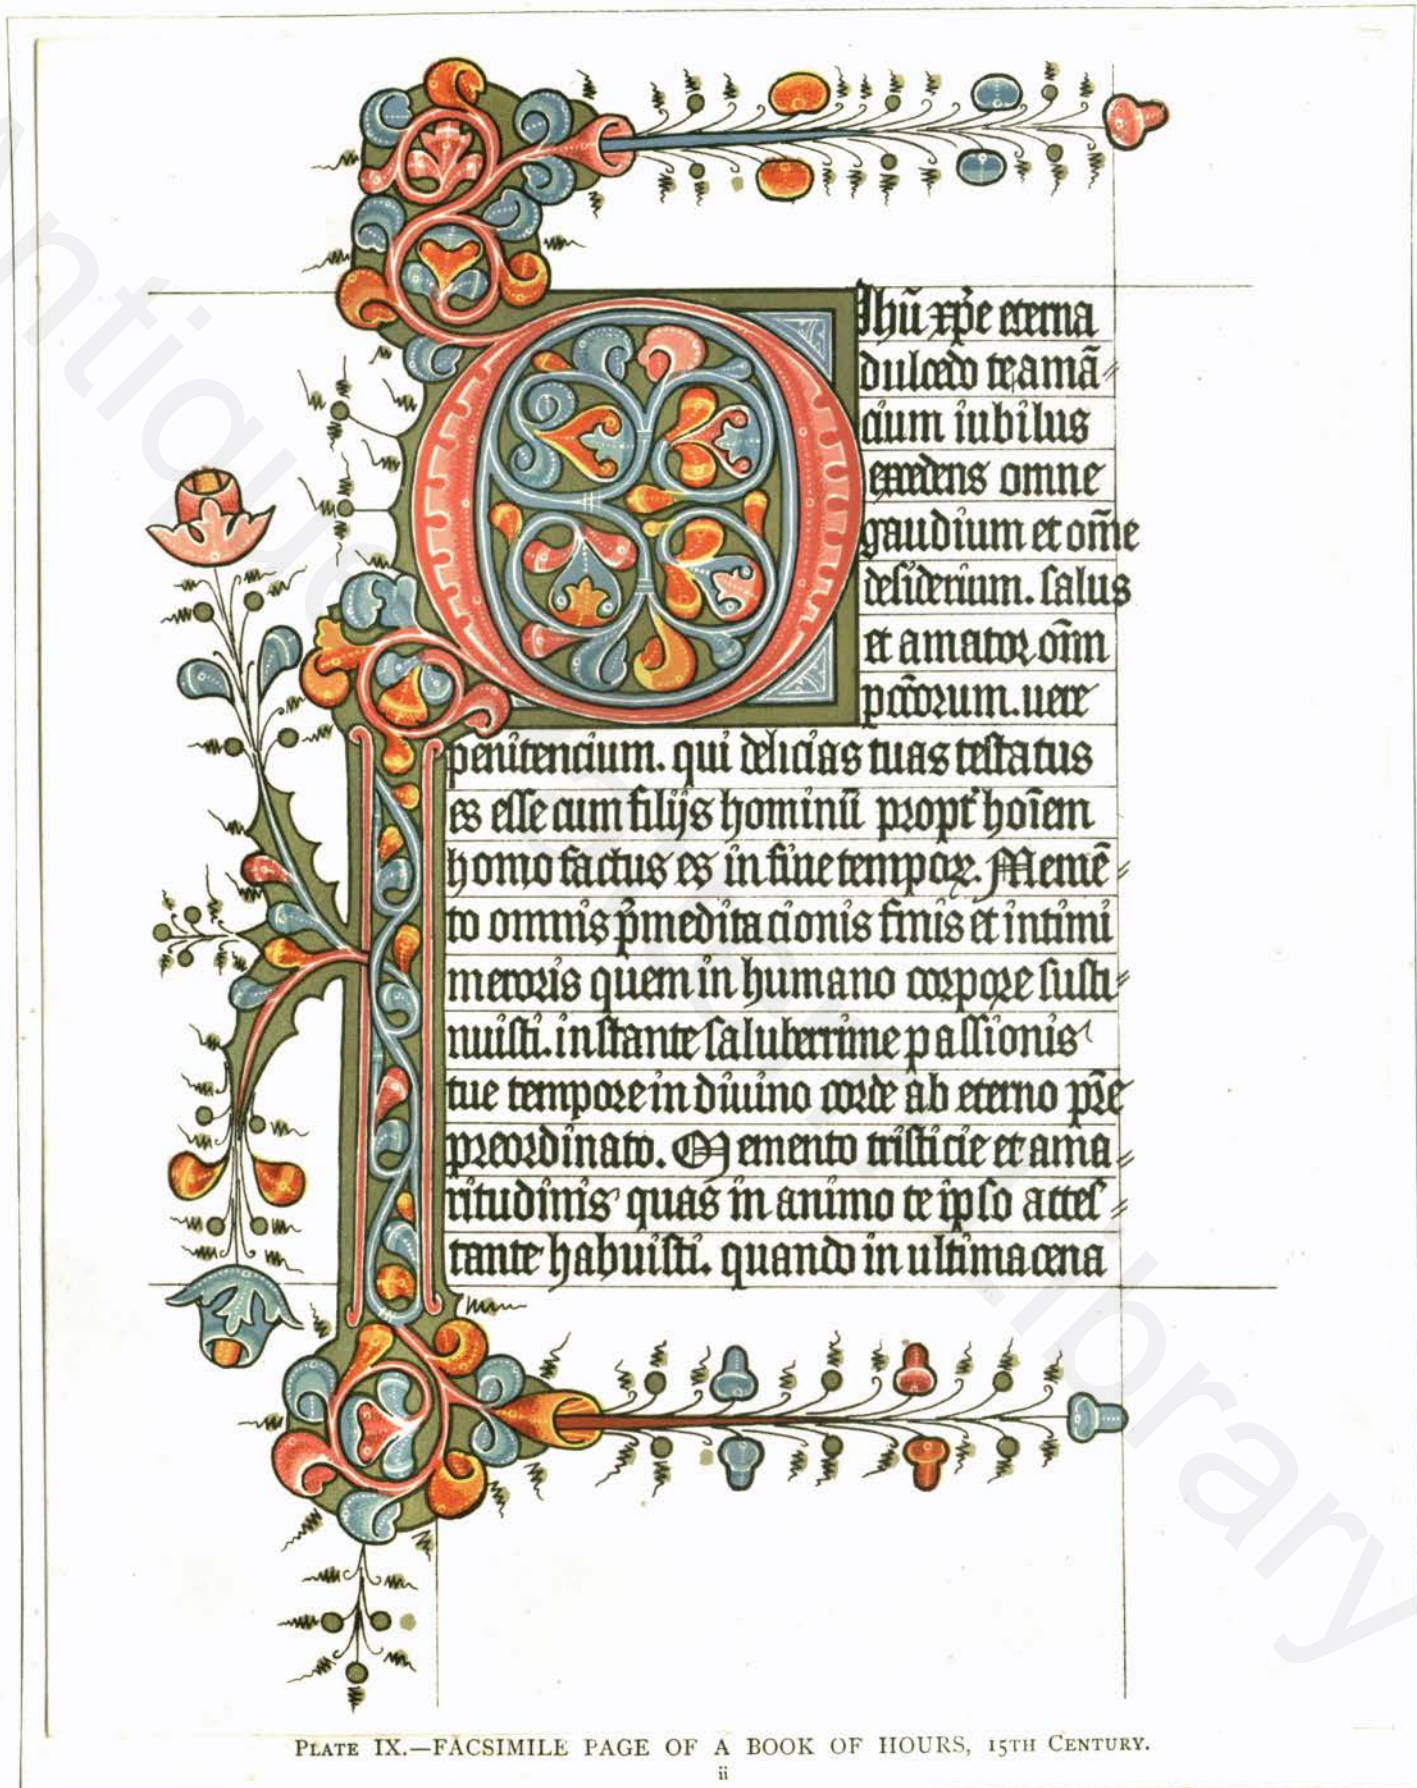 O
Jhū xp̄e eterna
dulcedo te amā⸗
cium iubilus
excedens omne
gaudium et om̄e
desiderium. salus
et amator om̄
pctōrum. uere
penitencium. qui delicias tuas testatus
es esse cum filijs hominū propt̄ hoīem
homo factus es in fine tempoꝝ. Memē⸗
to omnis p̄meditacionis finis et intimi
meroris quem in humano corpore susti⸗
nuisti. instante saluberrime passionis
tue tempore in diuino corde ab eterno pr̄e
preordinato. Memento tristicie et ama⸗
ritudinis quas in animo te ipso attes⸗
tante habuisti. quando in ultima cena
PLATE IX.—FACSIMILE PAGE OF A BOOK OF HOURS, 15TH CENTURY.
ii